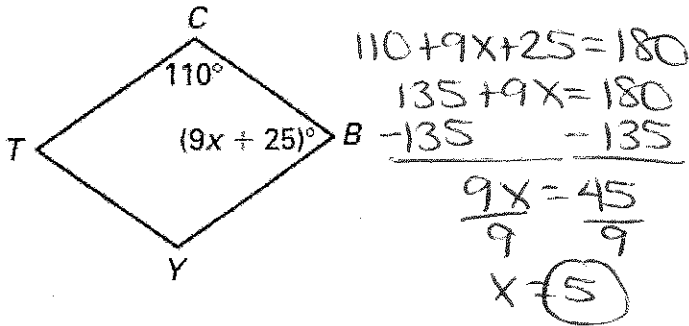 C
110°
T
(9x + 25)°
B
Y
110+9x+25=180
135+9x=180
-135 -135
9x=45
9 9
x=5